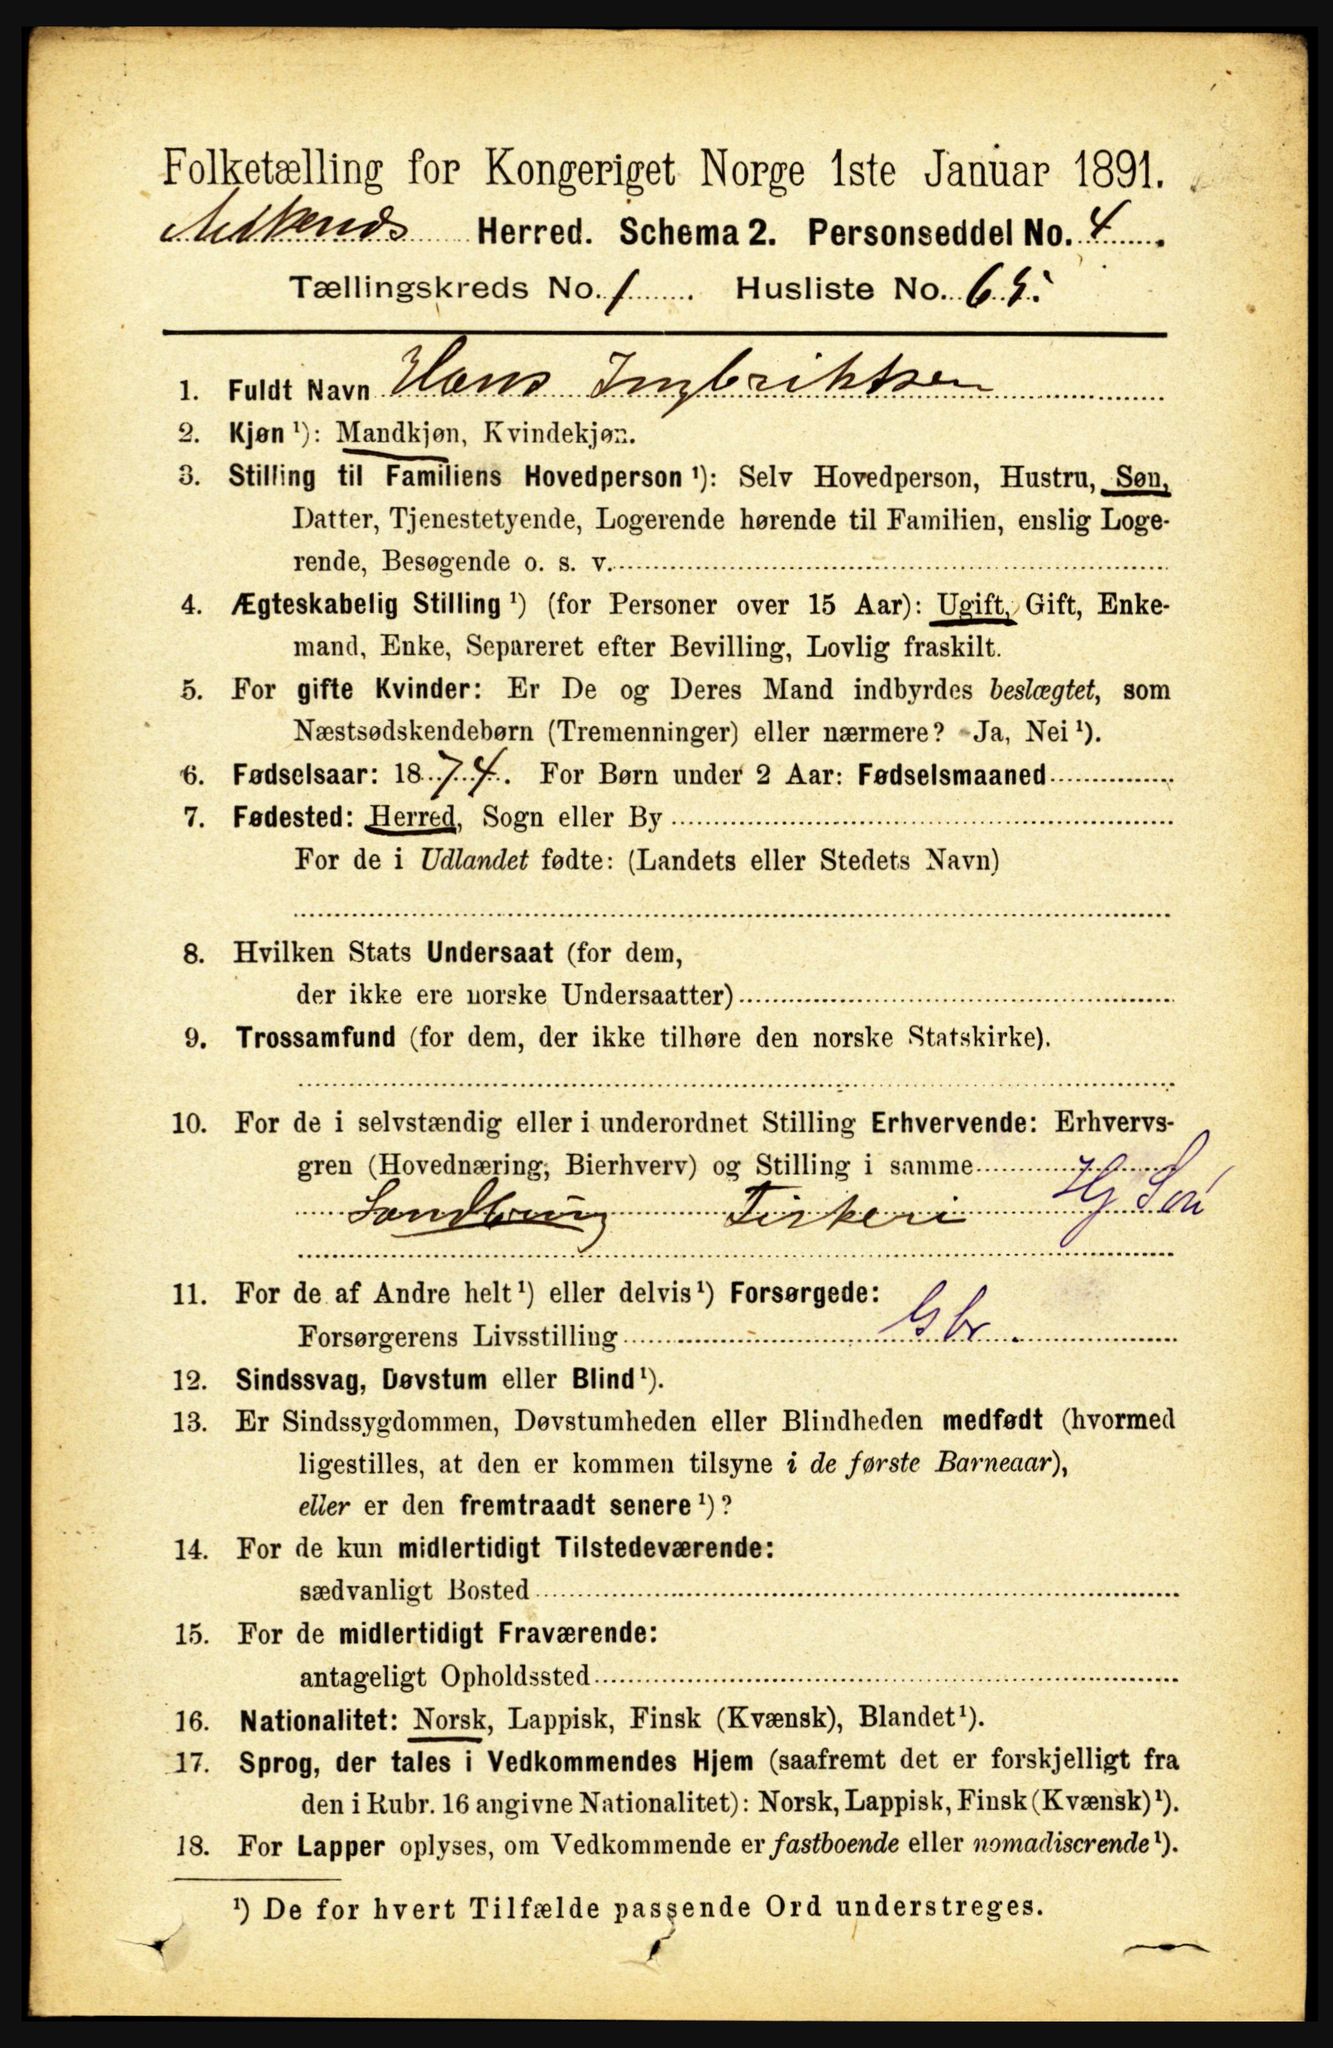 Folketælling for Kongeriget Norge 1ste Januar 1891.
Herred. Schema 2. Personseddel No. 4
Tællingskreds No. 1 Husliste No. 65.
1. Fuldt Navn Hans Ingbriktsen
2. Kjøn ¹): Mandkjøn, Kvindekjøn.
3. Stilling til Familiens Hovedperson ¹): Selv Hovedperson, Hustru, Søn,
Datter, Tjenestetyende, Logerende hørende til Familien, enslig Loge-
rende, Besøgende o. s. v.
4. Ægteskabelig Stilling ¹) (for Personer over 15 Aar): Ugift, Gift, Enke-
mand, Enke, Separeret efter Bevilling, Lovlig fraskilt.
5. For gifte Kvinder: Er De og Deres Mand indbyrdes beslægtet, som
Næstsødskendebørn (Tremenninger) eller nærmere? Ja, Nei ¹).
6. Fødselsaar: 1874. For Børn under 2 Aar: Fødselsmaaned
7. Fødested: Herred, Sogn eller By
For de i Udlandet fødte: (Landets eller Stedets Navn)
8. Hvilken Stats Undersaat (for dem,
der ikke ere norske Undersaatter)
9. Trossamfund (for dem, der ikke tilhøre den norske Statskirke).
10. For de i selvstændig eller i underordnet Stilling Erhvervende: Erhvervs-
gren (Hovednæring, Bierhverv) og Stilling i samme
Fiskeri
11. For de af Andre helt ¹) eller delvis ¹) Forsørgede:
Forsørgerens Livsstilling Gbr.
12. Sindssvag, Døvstum eller Blind ¹).
13. Er Sindssygdommen, Døvstumheden eller Blindheden medfødt (hvormed
ligestilles, at den er kommen tilsyne i de første Barneaar),
eller er den fremtraadt senere ¹)?
14. For de kun midlertidigt Tilstedeværende:
sædvanligt Bosted
15. For de midlertidigt Fraværende:
antageligt Opholdssted
16. Nationalitet: Norsk, Lappisk, Finsk (Kvænsk), Blandet ¹).
17. Sprog, der tales i Vedkommendes Hjem (saafremt det er forskjelligt fra
den i Rubr. 16 angivne Nationalitet): Norsk, Lappisk, Finsk (Kvænsk) ¹).
18. For Lapper oplyses, om Vedkommende er fastboende eller nomadiserende ¹).
¹) De for hvert Tilfælde passende Ord understreges.